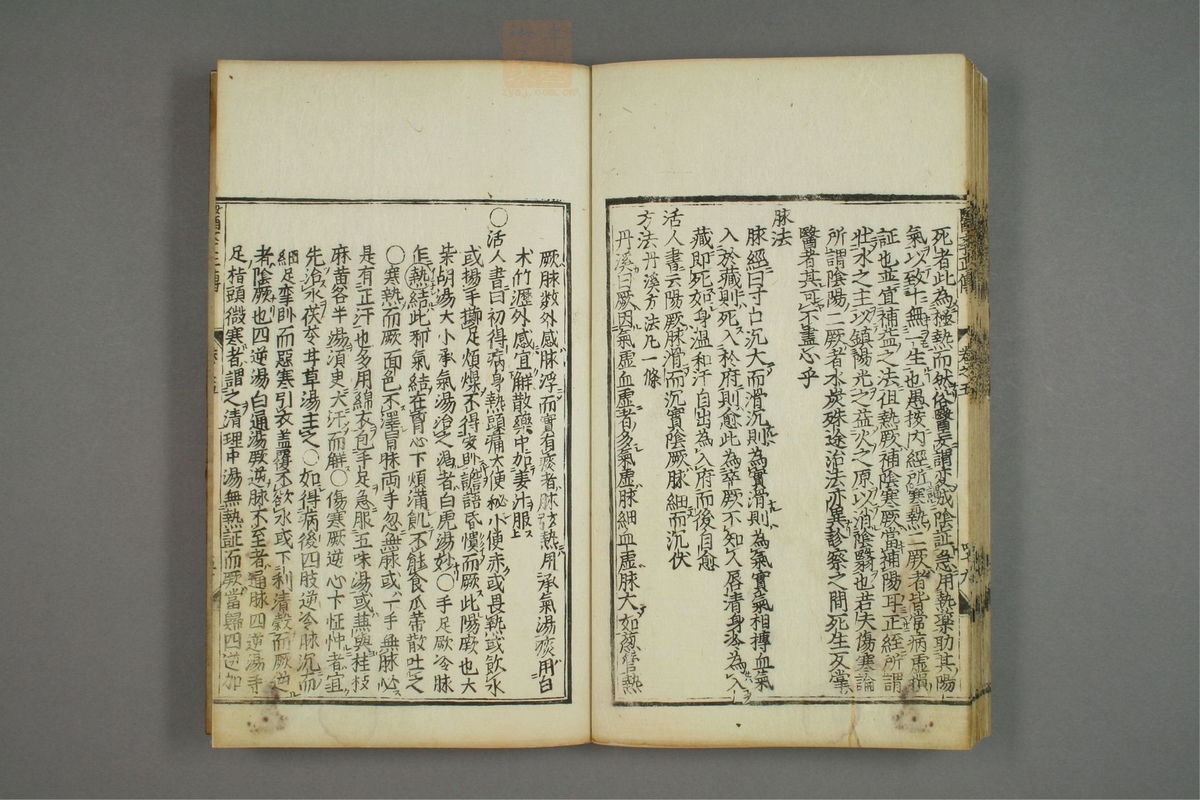 死者此為極熱而然俗醫云謂變成陰証急用熱藥助其陽
氣以致十無一生也愚按内經所寒熱二厥者皆常病虚損
証也並宜補益之法但熱厥補陰寒厥當補陽耳正經所謂
壯水之主以鎮陽光之益火之原以消陰翳也若夫傷寒論
所謂陰陽二厥者水炭殊途治法亦異診察之間死生反掌
醫者其可不盡心乎
脉法
脉經曰寸口沉大而滑沉則為實滑則為氣實氣相搏血氣
入於藏則死入於府則愈此為卒厥不知人唇清身冷為入
藏即死如身温和汗自出為入府而後自愈
活人書云陽厥脉滑而沉實陰厥脉細而沉伏
方法丹溪方法凡一條
丹溪曰厥因氣虚血虚者多氣虚脉細血虚脉大如葱管熱
厥脉数外感脉浮而實有痰者脉弦熱用承氣湯痰用白
术竹瀝外感宜解散藥中加姜汁服上
〇活人書曰初得病身熱頭痛大便秘小便赤或畏熱或飲水
或揚手擲足煩燥不得安卧譫語昏憒而厥此陽厥也大
柴胡湯大小承氣湯治之渴者白虎湯妙〇手足厥冷脉
乍熱結此邪氣結在胷心下煩滿飢不能食瓜蒂散吐之
〇寒熱而厥面色不澤冒昧兩手忽無脉或一手無脉必
是有正汗也多用綿衣包手足急服五味湯或煎與桂枝
麻黄各半湯須臾大汗而解〇傷寒厥逆心下怔忡者宜
先治水茯苓甘草湯主之〇如得病後四肢逆冷脉沉而
細足攣卧而惡寒引衣盖覆不欲水或下利清穀而厥逆
者陰厥也四逆湯白通湯厥逆脉不至者通脉四逆湯手
足指頭微寒者謂之清理中湯無熱証而厥當歸四逆加